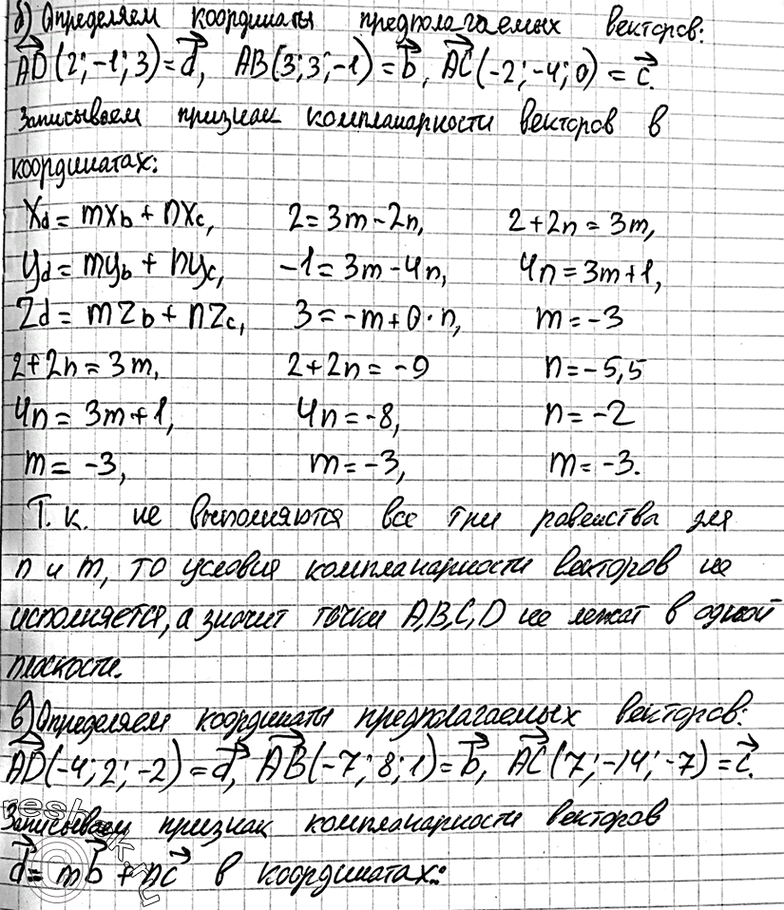 б) Определяем координаты предполагаемых векторов:
AD(2;-1;3)=d, AB(3;3;-1)=b, AC(-2;-4;0)=c.
Записываем признак компланарности векторов в
координатах:
Xd = mXb + nXc, 2=3m-2n, 2+2n=3m,
Yd = mYb + nYc, -1=3m-4n, 4n=3m+1,
Zd = mZb + nZc, 3=-m+0·n, m=-3
2+2n=3m, 2+2n=-9 n=-5,5
4n=3m+1, 4n=-8, n=-2
m=-3, m=-3, m=-3.
Т.к. не выполняются все три равенства для
n и m, то условия компланарности векторов не
исполняется, а значит точки A,B,C,D не лежат в одной
плоскости.
в) Определяем координаты предполагаемых векторов:
AD(-4;2;-2)=d, AB(-7;8;1)=b, AC(7;-14;-7)=c.
Записываем признак компланарности векторов
d=mb+nc в координатах: